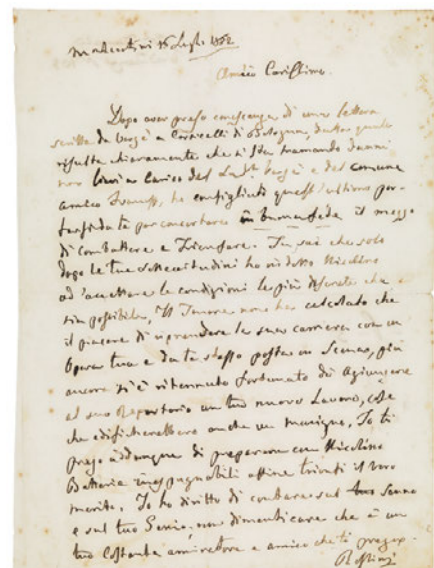 Montecatini 15 Luglio 1852
Amico Carissimo.
Dopo aver preso conoscenza di una lettera
scritta da Vergè a Corticelli di Bologna, dalla quale
risulta chiaramente che si sta tramando danni
non lievi a carico del Vergè e del comune
amico Ivanoff, ho consigliato quest'ultimo por-
tarsi da te per concertare in buona fede il mezzo
di combattere e Trionfare. Tu sai che solo
dopo le tue sollecitudini ho indotto Nicolino
ad accettare le condizioni le più discrete che
sia possibile, Il Tenore non ha calcolato che
il piacere di riprendere la sua carriera con un
Opera tua e da te stesso posta in Scena, più
ancora si è ritenuto fortunato di aggiungere
al suo Repertorio un tuo nuovo Lavoro, cose
che edificherebbero anche un Io ti
prego addunque di preparare con Nicolino
Batterie inespugnabili affine trionfi il vero
merito. Io ho diritto di contare sul tuo senno
e sul tuo Genio, non dimenticare che è un
tuo costante ammiratore e amico che ti prega.
Rossini